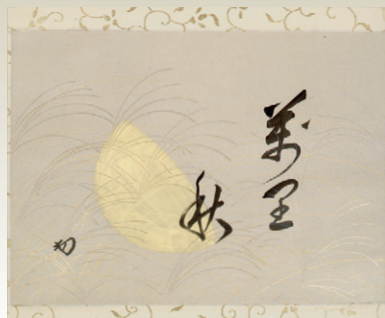 萬里
秋